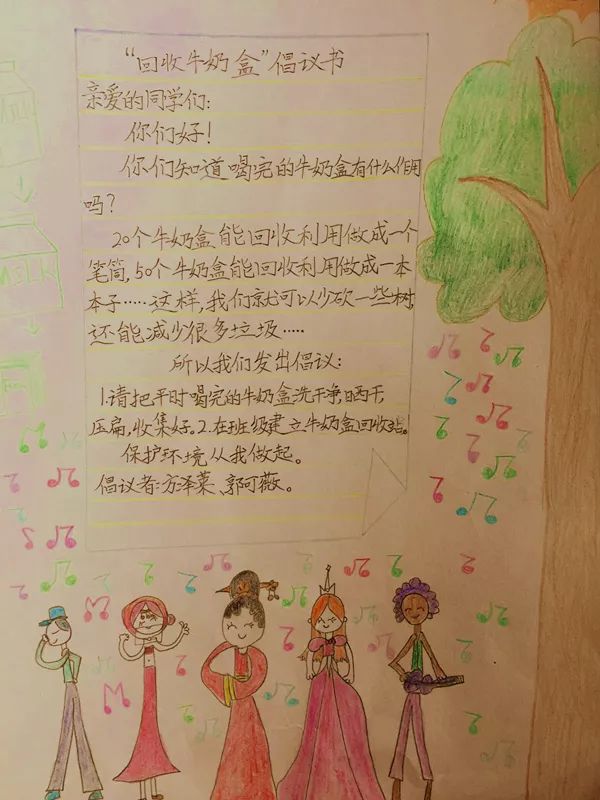 “回收牛奶盒”倡议书
亲爱的同学们:
你们好!
你们知道喝完的牛奶盒有什么作用
吗?
20个牛奶盒能回收利用做成一个
笔筒,50个牛奶盒能回收利用做成一本
本子……这样,我们就可以少砍一些树,
还能减少很多垃圾……
所以我们发出倡议:
1.请把平时喝完的牛奶盒洗干净,晒干,
压扁,收集好。2.在班级建立牛奶盒回收站。
保护环境从我做起。
倡议者:方泽菜、郭阿薇。
MILK
MILK